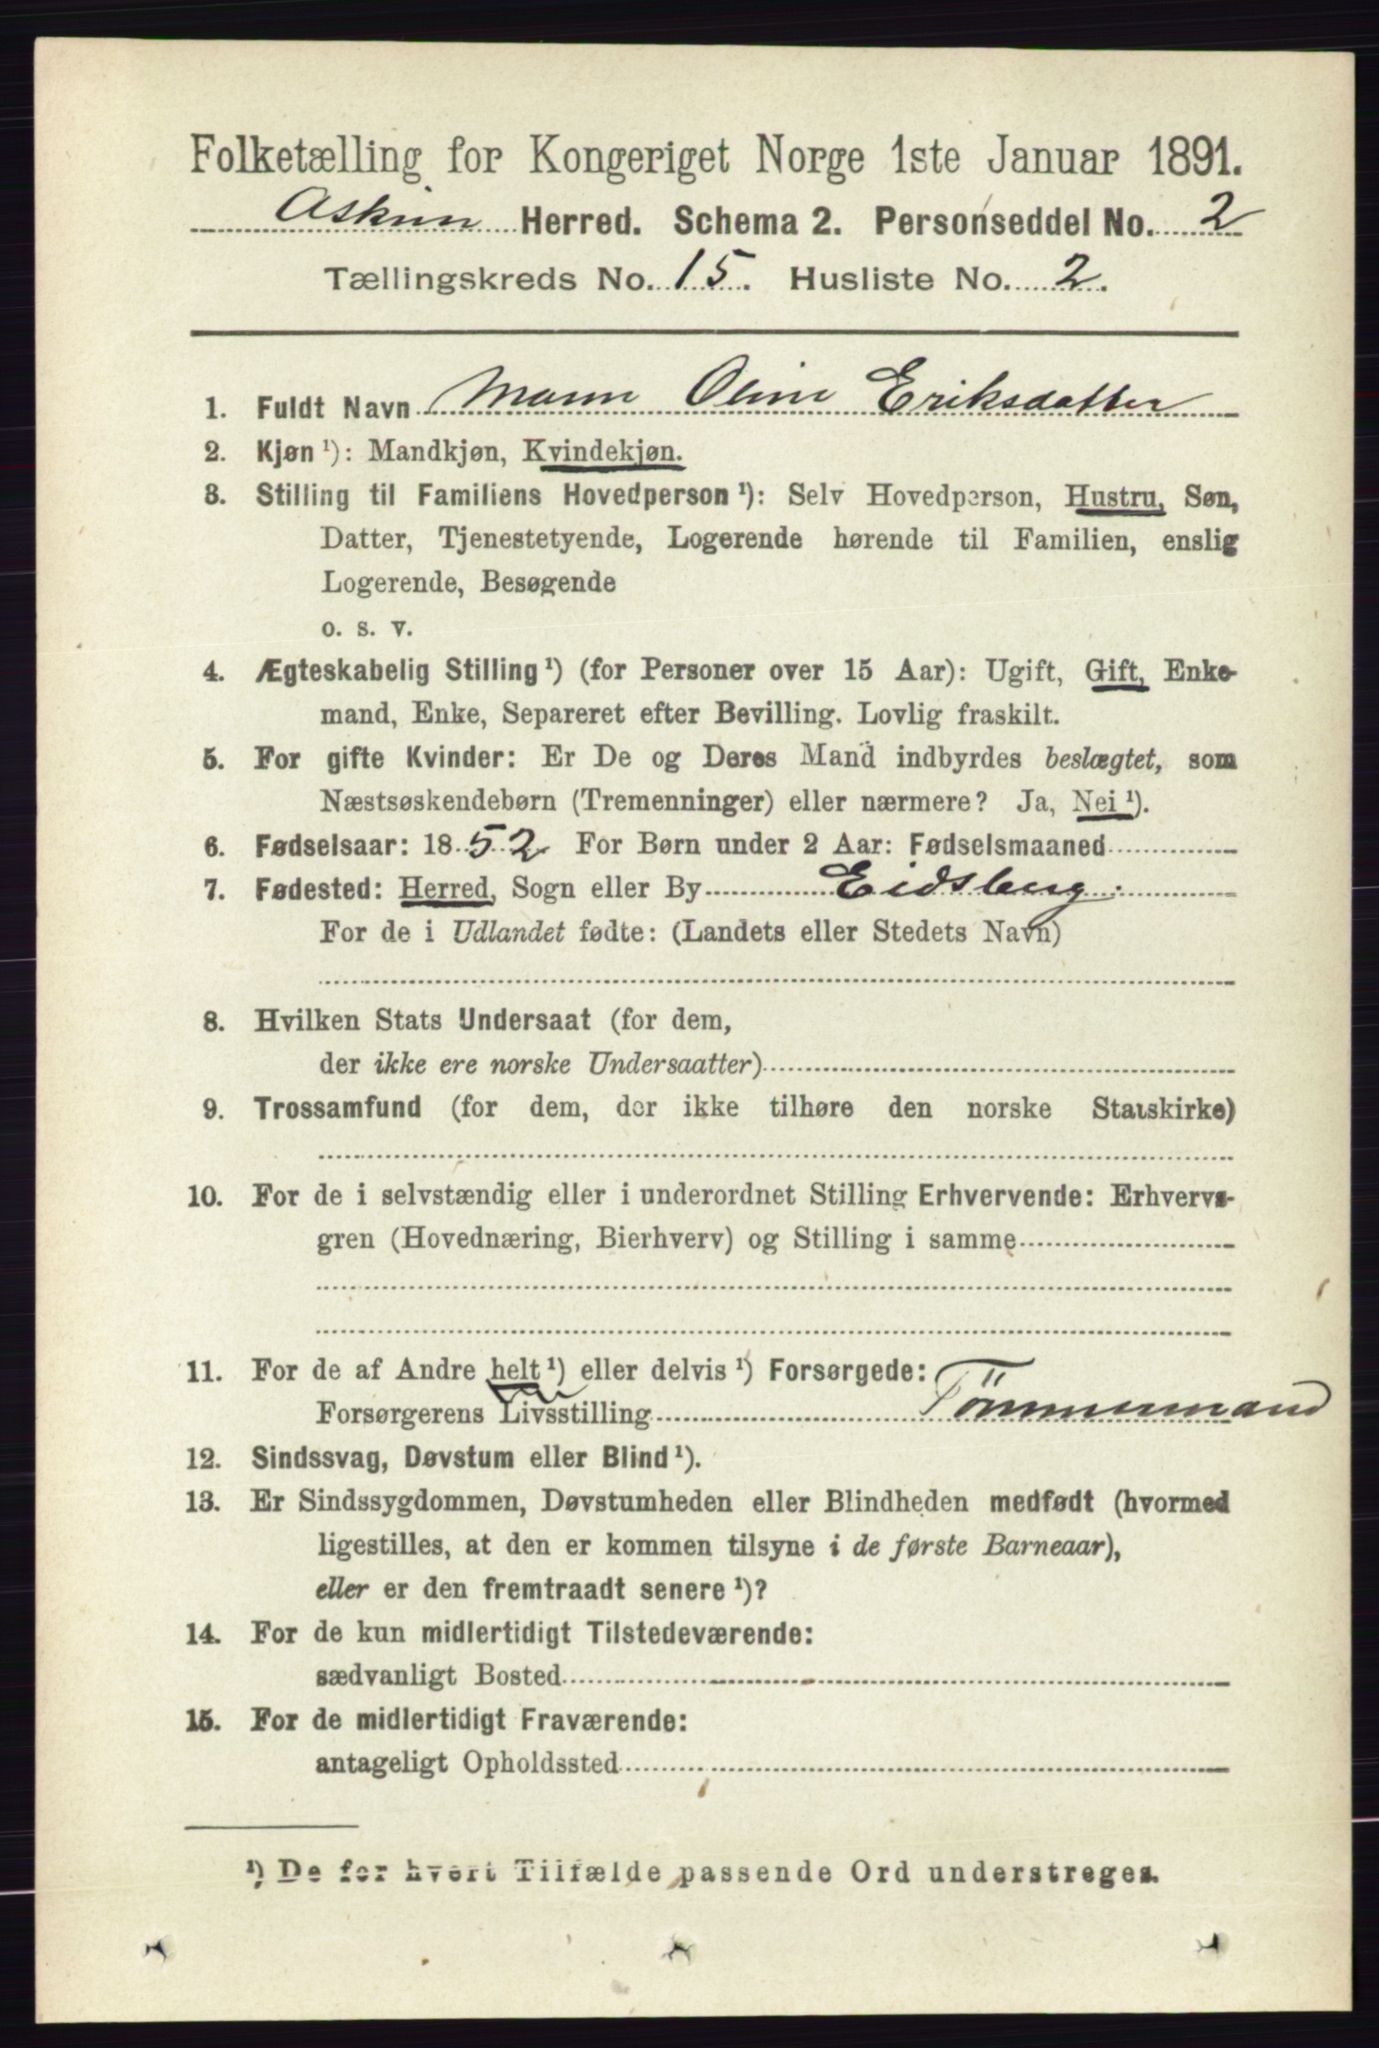 Folketælling for Kongeriget Norge 1ste Januar 1891.
Askim Herred. Schema 2. Personseddel No. 2
Tællingskreds No. 15. Husliste No. 2.
1. Fuldt Navn Maren Oline Eriksdatter
2. Kjøn ¹): Mandkjøn, Kvindekjøn.
3. Stilling til Familiens Hovedperson ¹): Selv Hovedperson, Hustru, Søn,
Datter, Tjenestetyende, Logerende hørende til Familien, enslig
Logerende, Besøgende
o. s. v.
4. Ægteskabelig Stilling ¹) (for Personer over 15 Aar): Ugift, Gift, Enke-
mand, Enke, Separeret efter Bevilling. Lovlig fraskilt.
5. For gifte Kvinder: Er De og Deres Mand indbyrdes beslægtet, som
Næstsøskendebørn (Tremenninger) eller nærmere? Ja, Nei ¹).
6. Fødselsaar: 1852 For Børn under 2 Aar: Fødselsmaaned
7. Fødested: Herred, Sogn eller By Eidsberg.
For de i Udlandet fødte: (Landets eller Stedets Navn)
8. Hvilken Stats Undersaat (for dem,
der ikke ere norske Undersaatter)
9. Trossamfund (for dem, der ikke tilhøre den norske Statskirke)
10. For de i selvstændig eller i underordnet Stilling Erhvervende: Erhvervs-
gren (Hovednæring, Bierhverv) og Stilling i samme
11. For de af Andre helt ¹) eller delvis ¹) Forsørgede:
Forsørgerens Livsstilling Tömmermand
12. Sindssvag, Døvstum eller Blind ¹).
13. Er Sindssygdommen, Døvstumheden eller Blindheden medfødt (hvormed
ligestilles, at den er kommen tilsyne i de første Barneaar),
eller er den fremtraadt senere ¹)?
14. For de kun midlertidigt Tilstedeværende:
sædvanligt Bosted
15. For de midlertidigt Fraværende:
antageligt Opholdssted
¹) De for hvert Tilfælde passende Ord understreges.